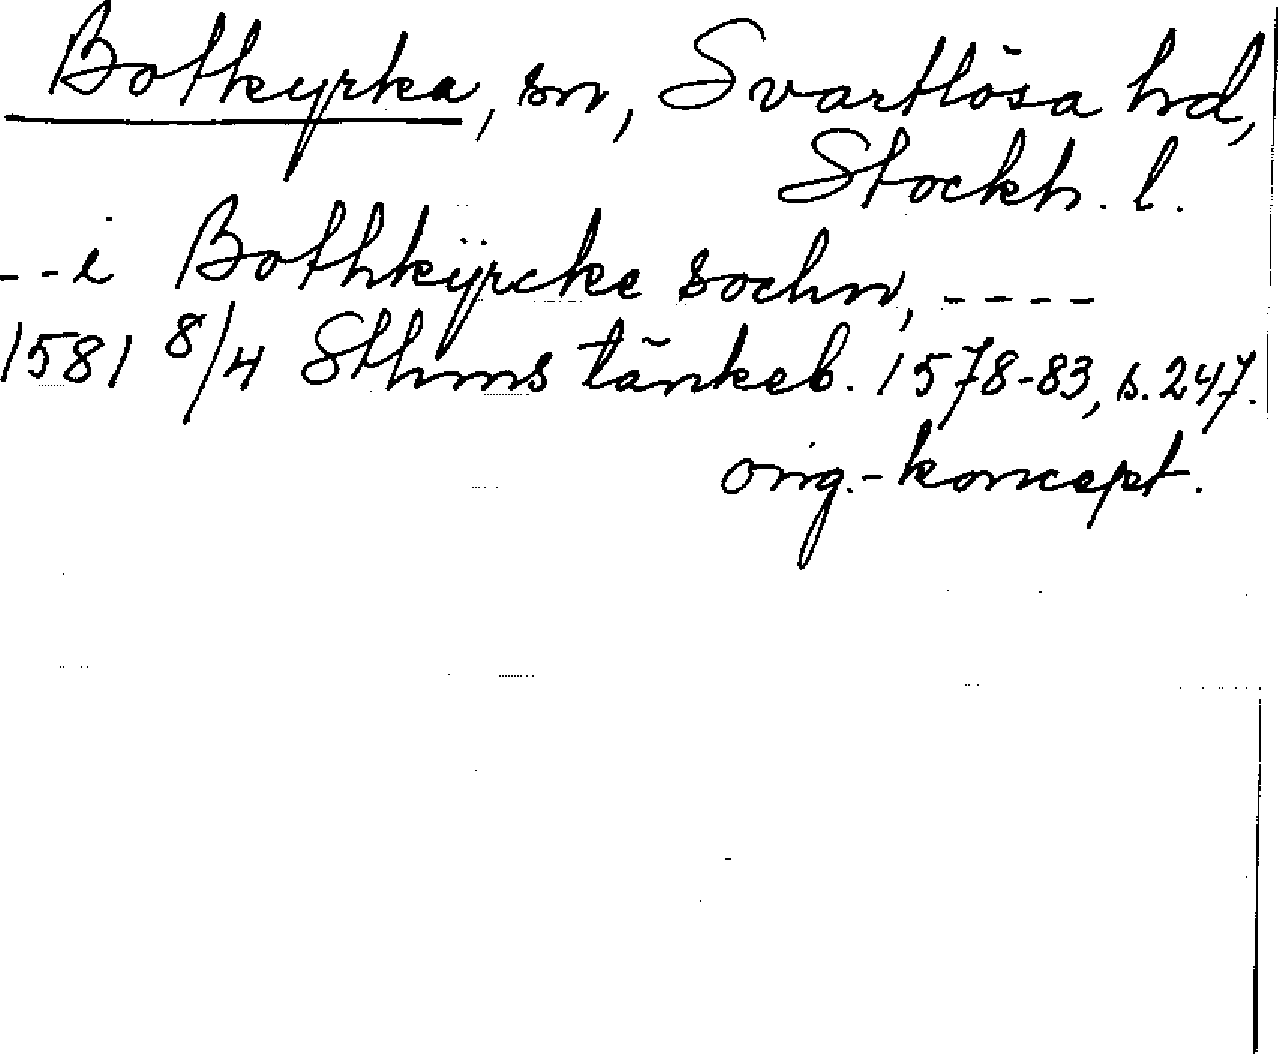 Botkyrka, sn, Svartlösa hd,
Stockh. l.
--i Bothkÿrcke sochn, ----
1581 8/4 Sthms tänkeb. 1578-83, s. 247.
orig.-koncept.